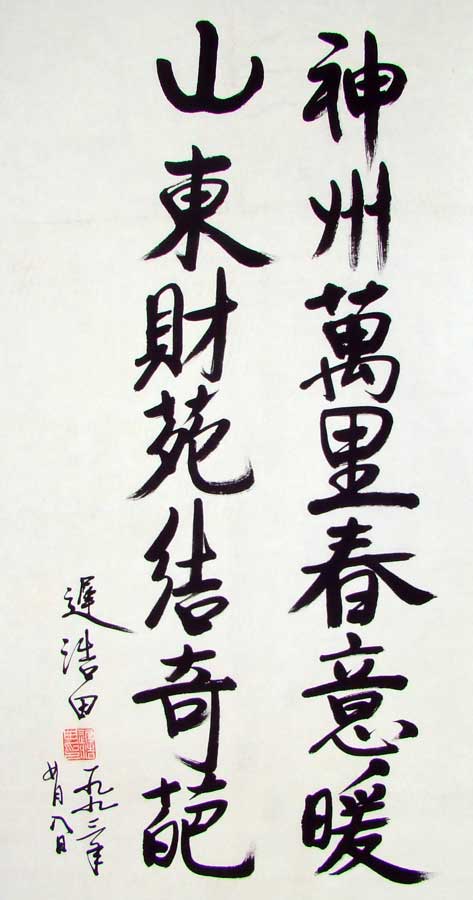 神州萬里春意暖
山東財苑結奇葩
遲浩田
一九九年
月八日